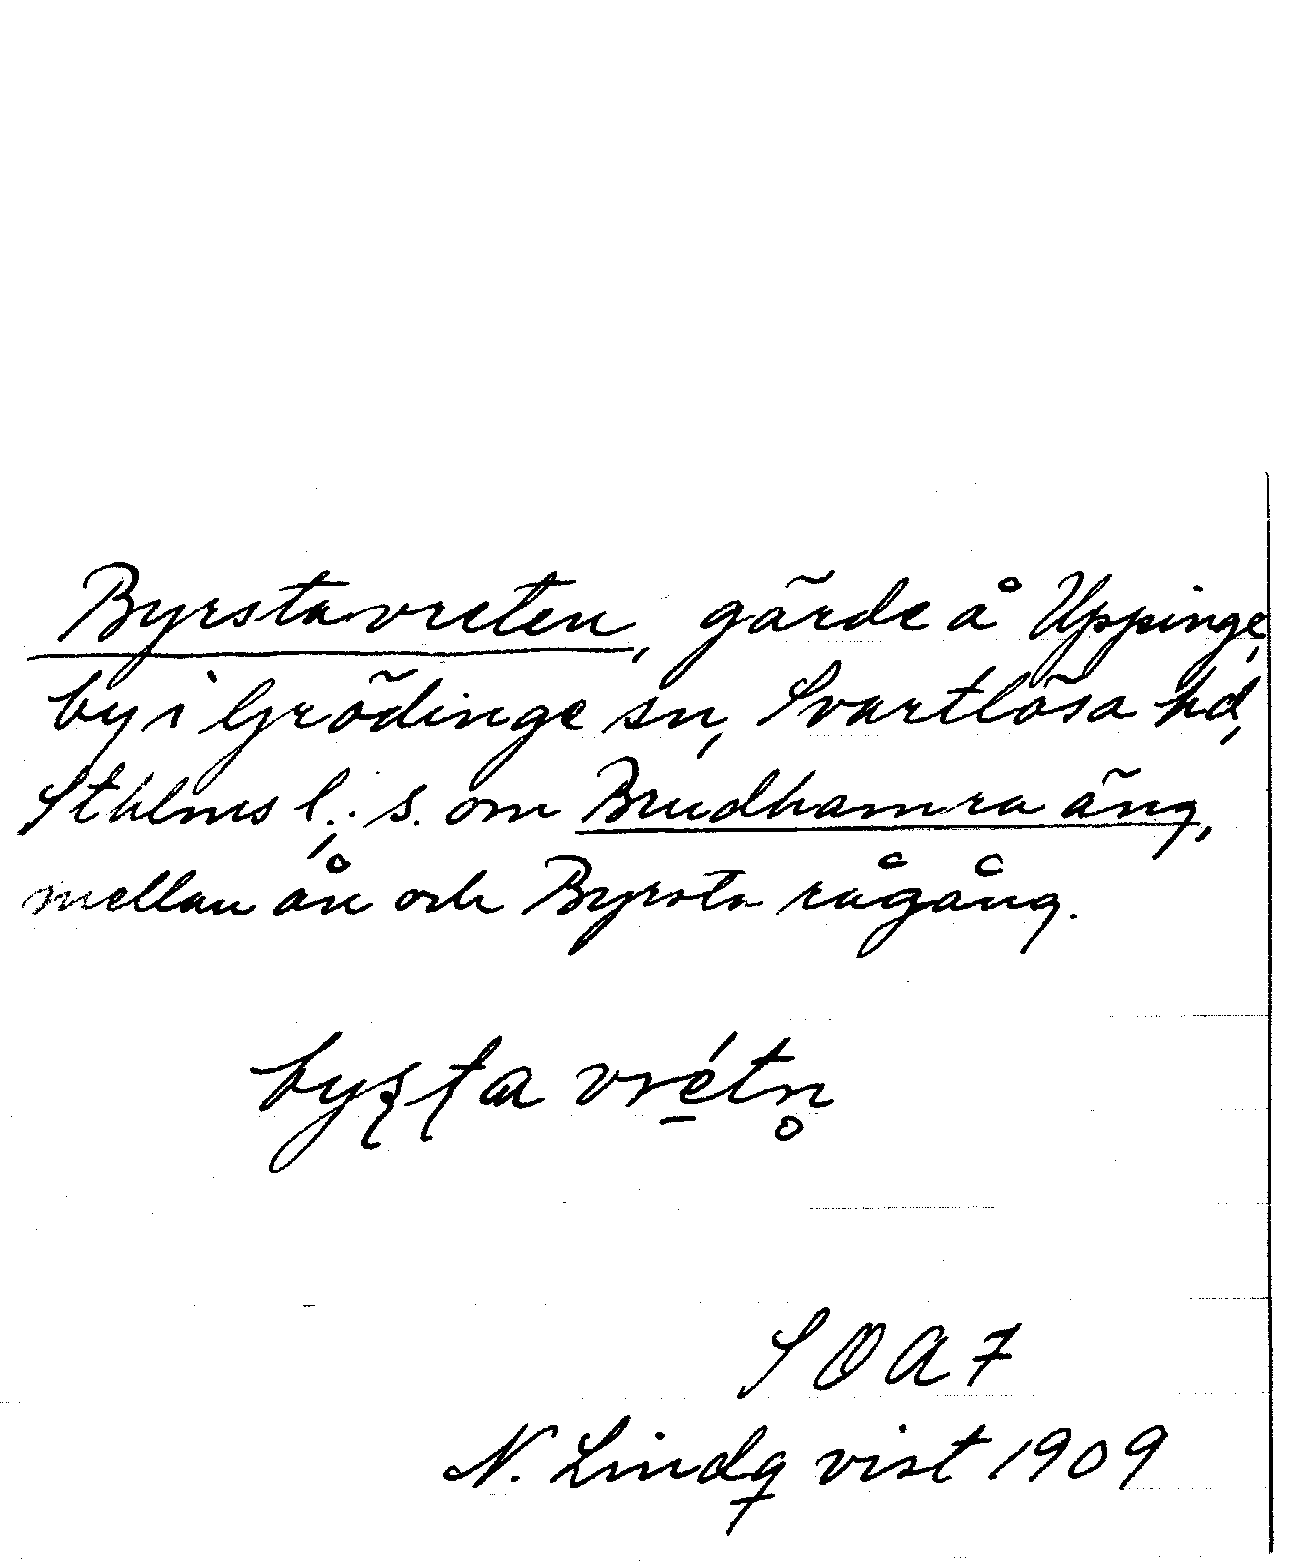 Byrstavreten, gärde å Uppinge,
by i Grödinge sn, Svartlösa hd,
Sthlms l.; s. om Brudhamra äng,
mellan ån och Byrsta rågång.
vrétn̥
SOA 7
N. Lindqvist 1909